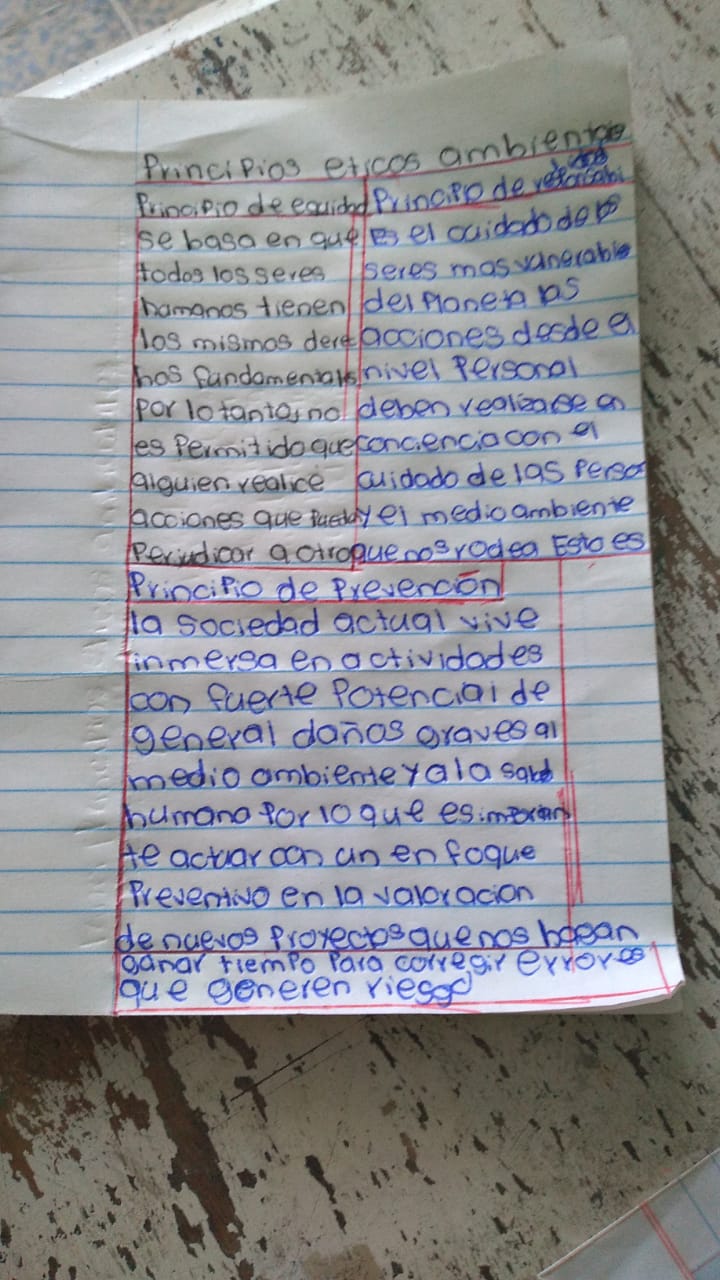 Principios eticos ambientales
Principio de equidad
se basa en que
todos los seres
humanos tienen
los mismos derec
hos fundamentales
Por lo tanto, no
es Permitido que
alguien realice
acciones que Pueda
Perjudicar a otro
Principo de
es el cuidado de los
seres mas vunerable
del Planeta las
acciones desde el
nivel Personal
deben realizarse en
conciencia con el
cuidado de las Person
y el medio ambiente
que nos rodea Esto es
Principio de Prevención
la sociedad actual vive
inmersa en actividades
con fuerte Potencial de
general daños graves al
medio ambiente y a la salud
humana Por lo que es importan
te actuar con un enfoque
Preventivo en la valoracion
de nuevos Proyectos que nos hagan
ganar tiempo Para corregir errores
que generen riesgo